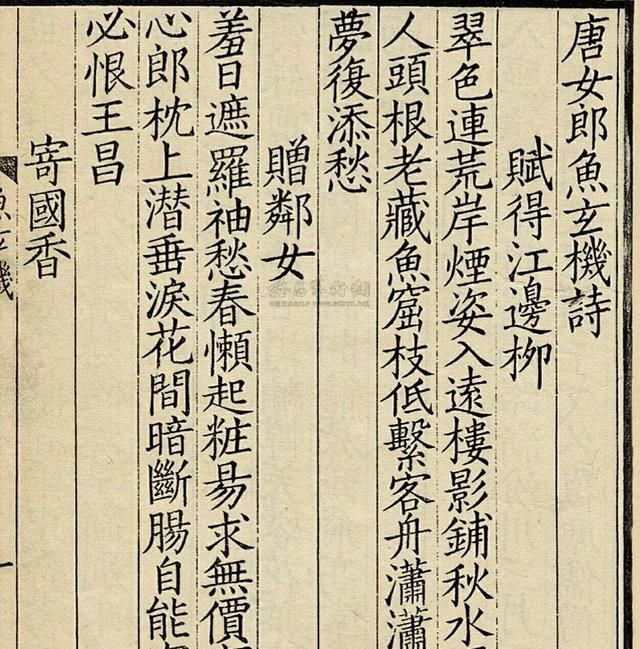 唐女郎魚玄機詩
賦得江邊柳
翠色連荒岸煙姿入遠樓影鋪秋水
人頭根老藏魚窟枝低繫客舟瀟瀟
夢復添愁
贈鄰女
羞日遮羅袖愁春懶起粧易求無價
心郎枕上潛垂淚花間暗斷腸自能
必恨王昌
寄國香
魚玄機
一